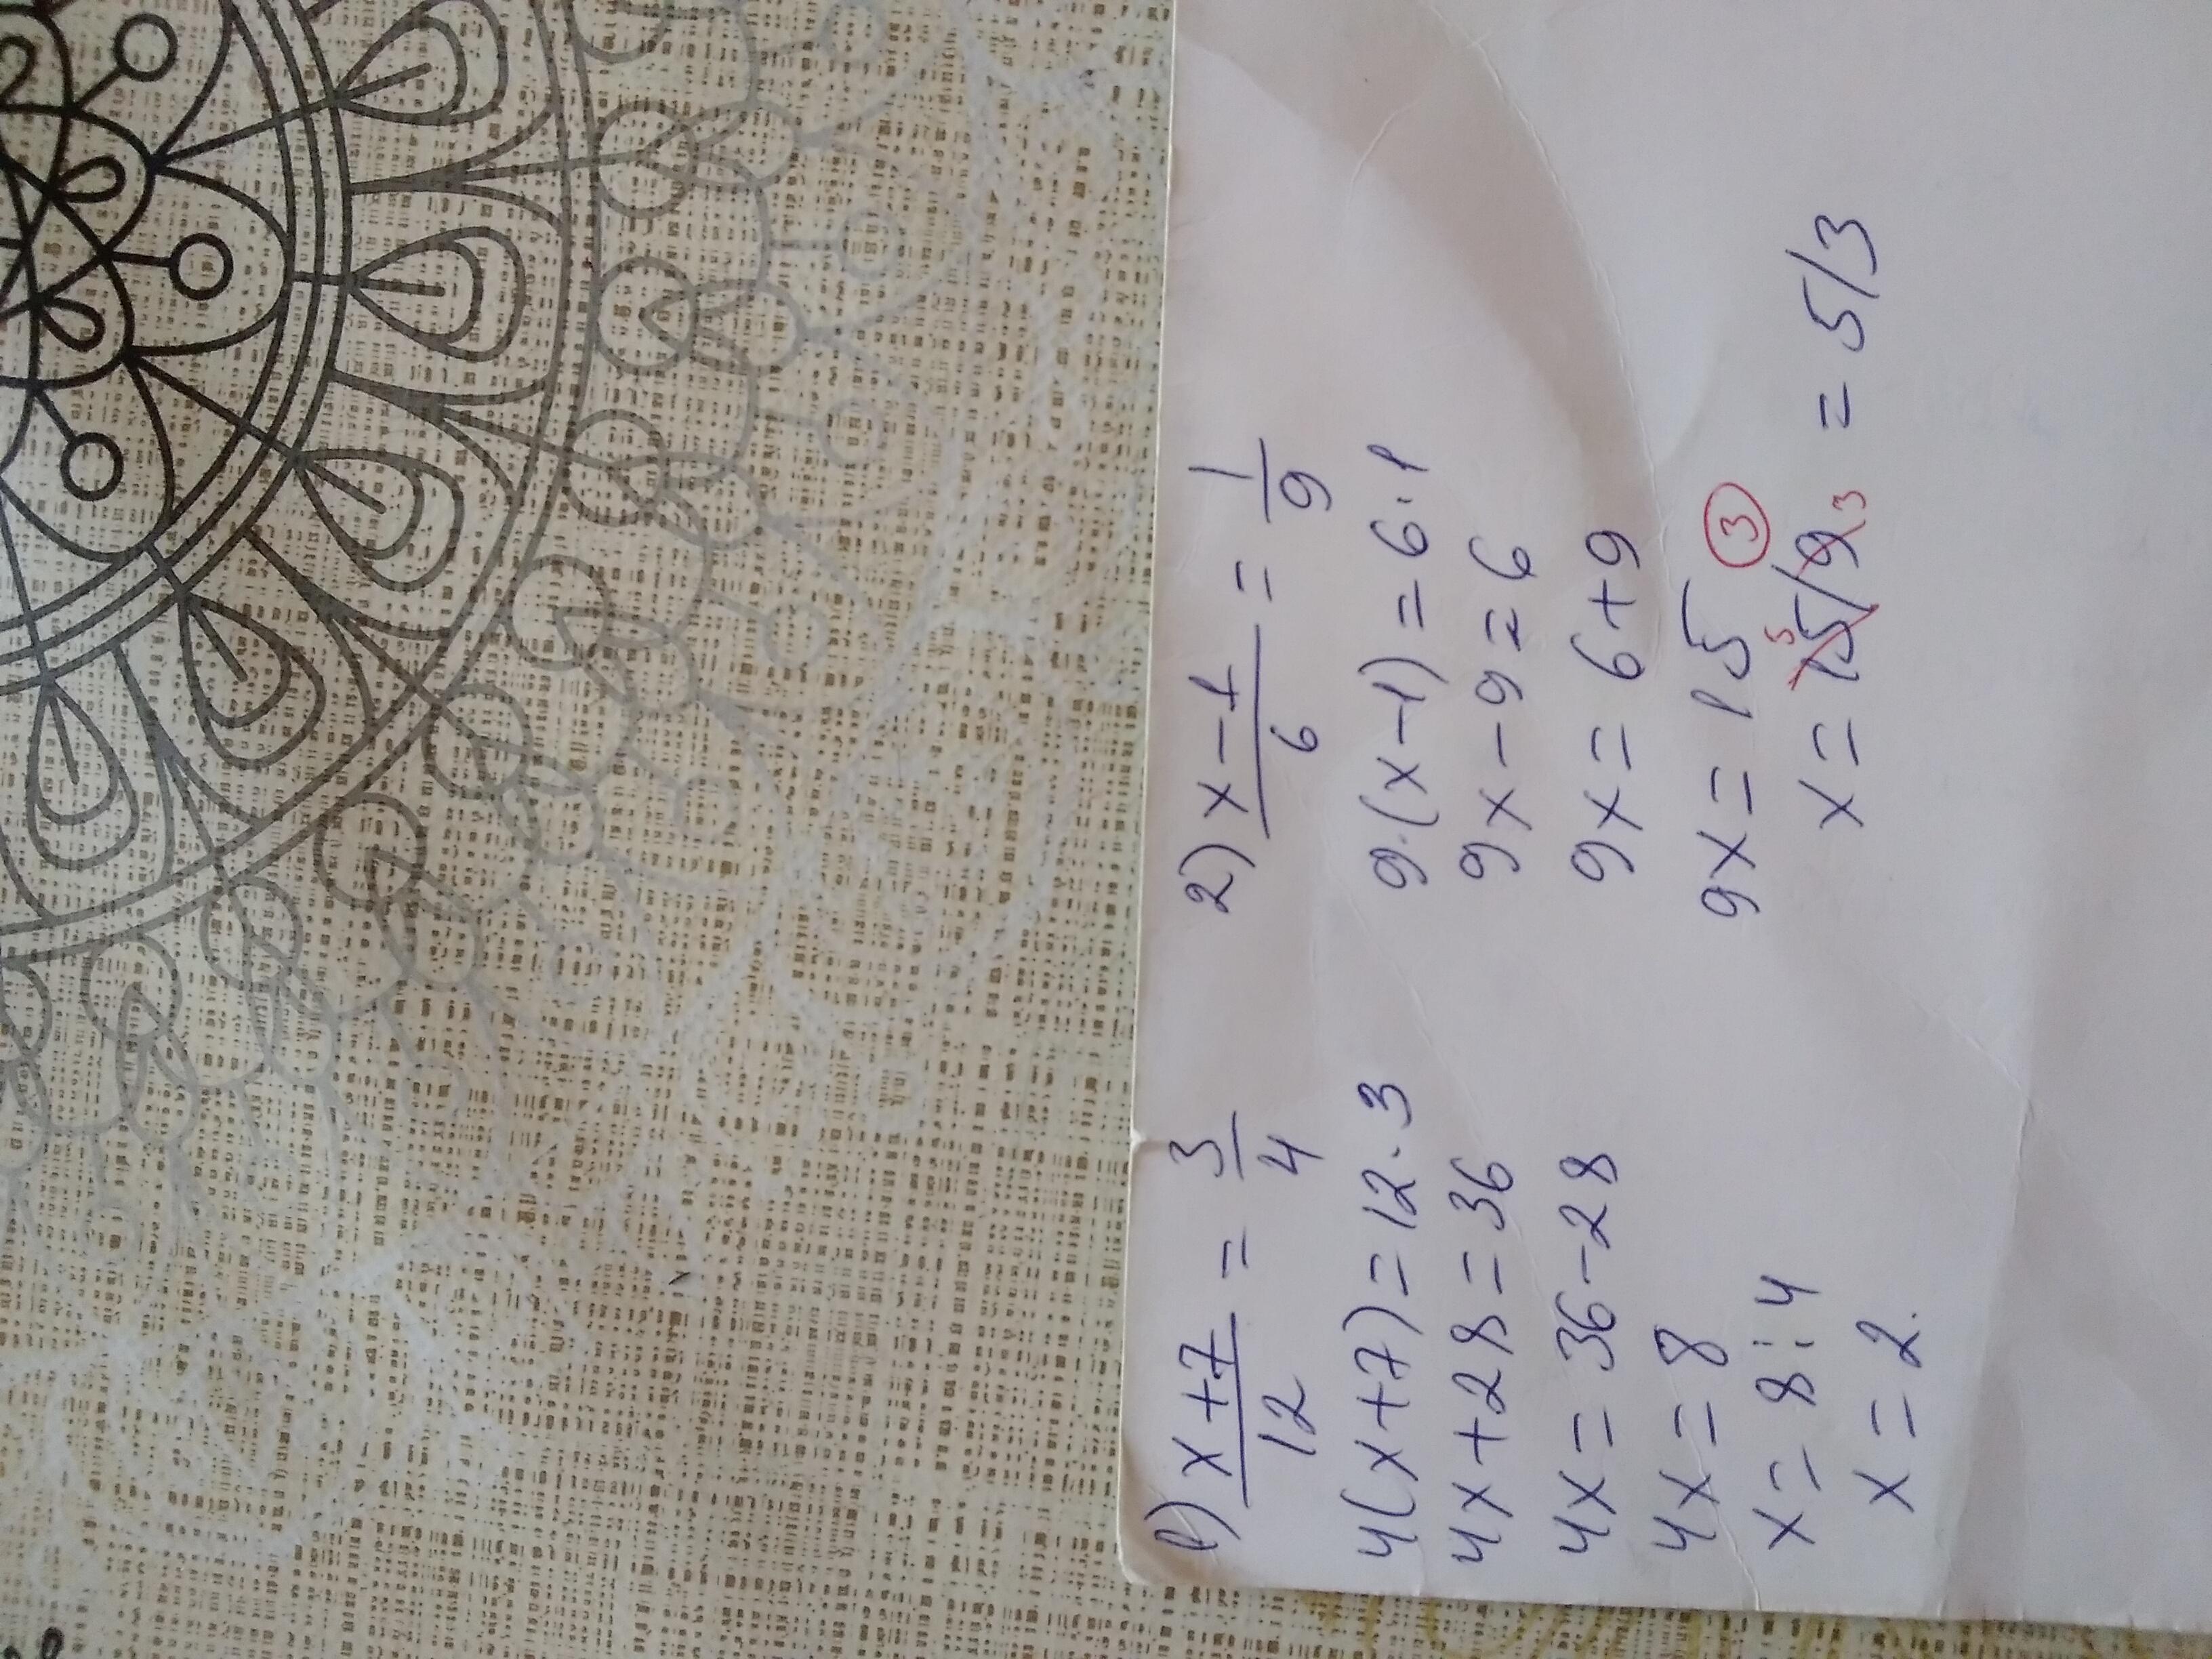 1) x+7/12 = 3/4
4(x+7)=12·3
4x+28=36
4x=36-28
4x=8
x=8:4
x=2.
2) x-1/6 = 1/9
9·(x-1)=6·1
9x-9=6
9x=6+9
9x=15 3
x=15/9 5 3 =5/3